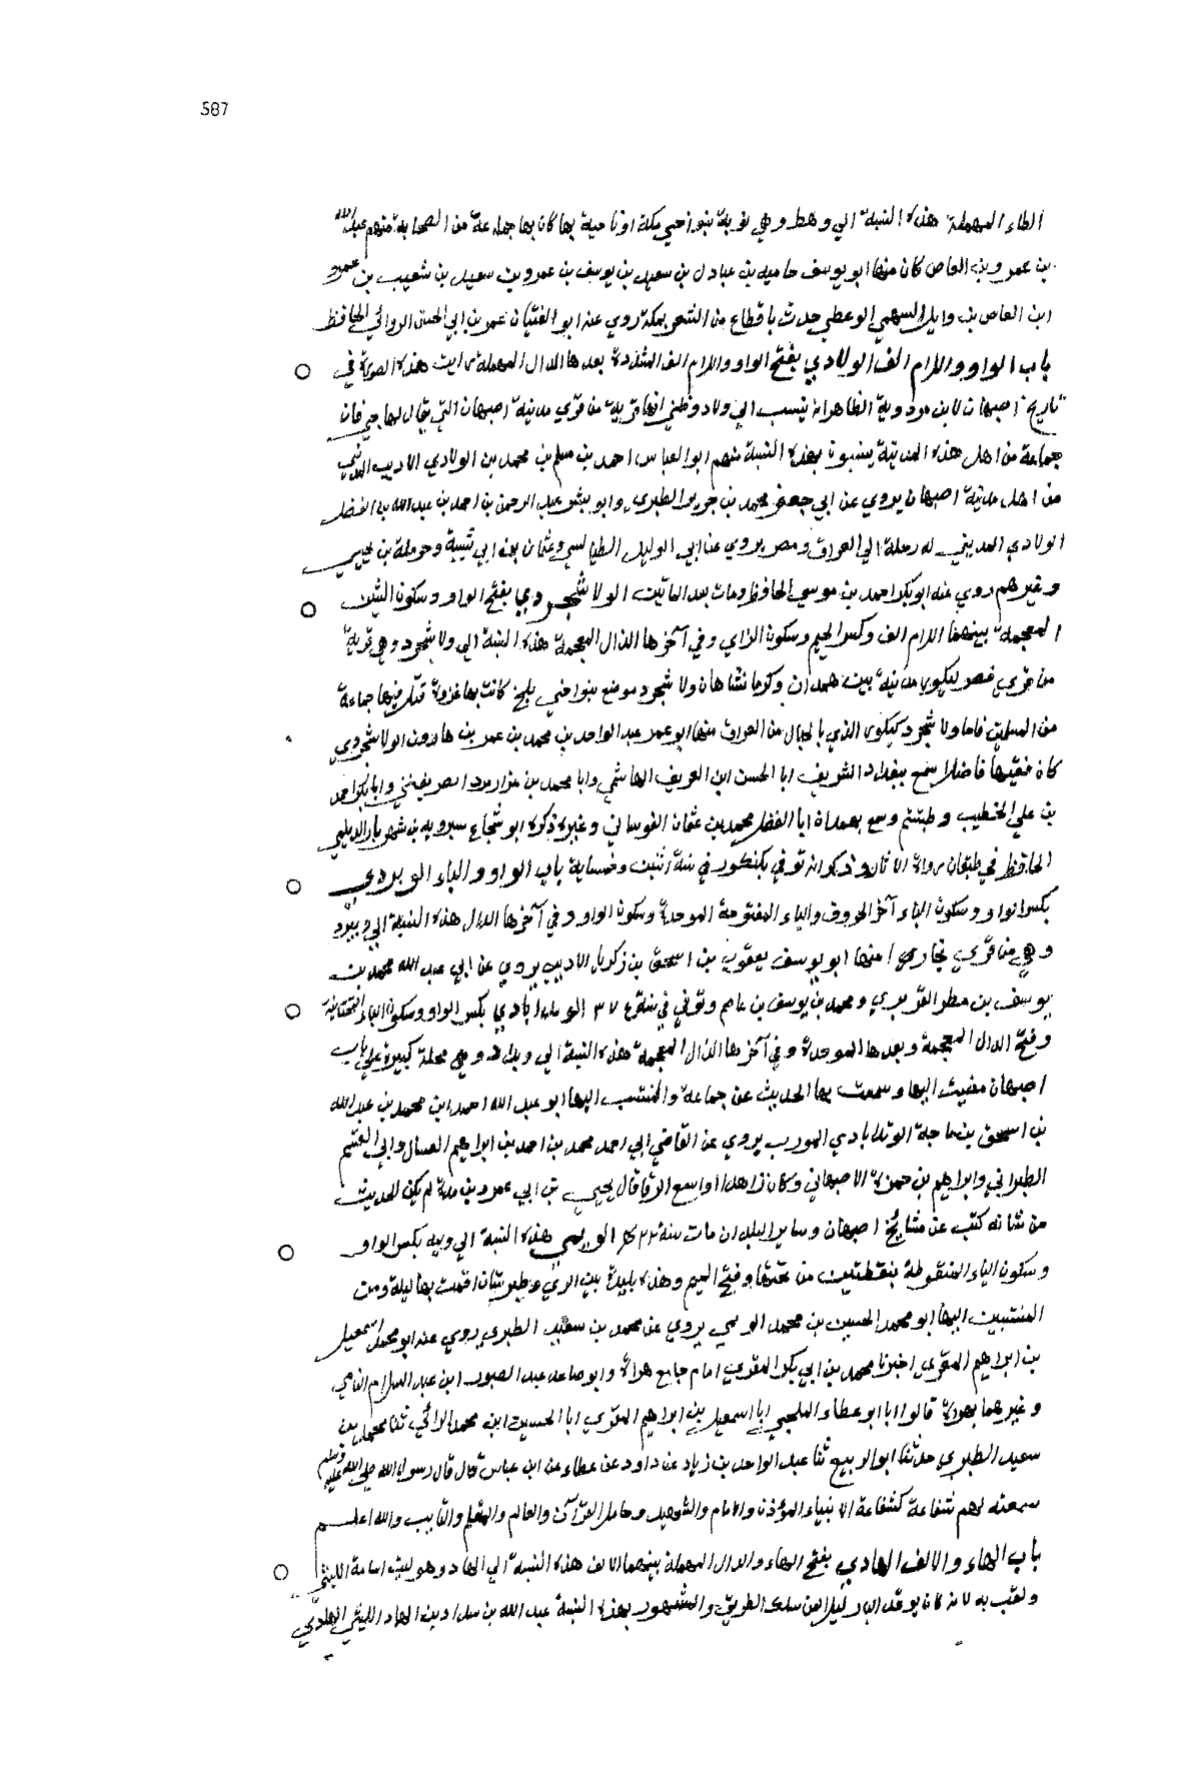 587
الطاء المهملة هذه النسبة الي وهط وهي قرية بنواحي مكة او ناحية بها كان بها جماعة من الصحابة منهم عبد الله
بن عمرو بن العاص كان منها ابو يوسف حاميه بن عبادل بن سعيد بن يوسف بن عمرو بن سعيد بن شعيب بن عمرو
ابن العاص بن وايل السهمي الوهطي حدث باقطاع من الشعر بمكة روي عنه ابو الفتيان عمر بن ابي الحسن الرواسي الحافظ
باب الواو واللام الف الولادي بفتح الواو واللام الف المشددة بعدها الدال المهملة رايت هذه الصورة في
تاريخ اصبهان لابن مردوية الظاهر انه ينسب الي ولاد وظني انها قرية من قري مدينة اصبهان التي يقال لها جي فان
جماعة من اهل هذه المدينة ينسبون بهذه النسبة منهم ابو العباس احمد بن مسلم بن محمد بن الولادي الاديب المديني
من اهل مدينة اصبهان يروي عن ابي جعفر محمد بن جرير الطبري وابو بشر عبد الرحمن بن احمد بن عبد الله بن الفضل
الولادي المديني له رحلة الي العراق ومصر يروي عن ابي الوليد الطيالسي وعثمان بن ابي شيبة وحرملة بن يحيي
وغيرهم روي عنه ابو بكر احمد بن موسي الحافظ ومات بعد الماتين الولاشجردي بفتح الواو وسكون الشين
المعجمة بينهما اللام الف وكسر الجيم وسكون الزاي وفي آخرها الذال المعجمة هذه النسبة الي ولاشجرد وهي قرية
من قري قصر كنكور مدينة بين همدان وكرمانشاهان ولاشجرد موضع بنواحي بلخ كانت بها غزوة قتل فيها جماعة
من المسلمين فاما ولاشجرد كنكور الذي بالجبال من العراق منها ابو عمر عبد الواحد بن محمد بن عمر بن هارون الولاشجردي
كان فقيها فاضلا سمع ببغداد الشريف ابا الحسن ابن العريف الهاشمي وابا محمد بن هزارمرد الصريفيني وابا بكر احمد
بن علي الخطيب وطبقتهم وسمع بهمداه ابا الفضل محمد بن عثمان القومساني وغيره ذكره ابو شجاع سيرويه بن شهريار الديلمي
الحافظ في طبقات رواة الاثار وذكر انه توفي بكنكور في سنة اثنين وخمساية باب الواو والياء الويردي
بكسر الواو وسكون الياء آخر الحروف والباء المفتوحة الموحدة وسكون الواو وفي آخرها الدال هذه النسبة الي ويبود
وهي من قري بخاري منها ابو يوسف يعقوب بن اسحق بن زكريا الاديب يروي عن ابي عبد الله محمد بن
يوسف بن مطر الفربري ومحمد بن يوسف بن عاصم وتوفي في سنة ٣٧ الويذاباذي بكسر الواو وسكون الياء التحتانية
وفتح الدال المعجمة وبعدها الموحدة وفي آخرها الذال المعجمة هذه النسبة الي ويذاباذ وهي محلة كبيرة علي باب
اصبهان مضيت اليها وسمعت بها الحديث عن جماعة والمنتسب اليها ابو عبد الله احمد ابن محمد بن عبد الله
بن اسحق بن ماجة الويذاباذي المودب يروي عن القاضي ابي احمد محمد بن احمد بن ابراهيم العسال وابي القسم
الطبراني وابراهيم بن حمزة الاصبهاني وكان زاهدا واسع الرواقال يحيي بن ابي عمرو بن مندة لم يكن الحديث
من شانه كتب عن مشايخ اصبهان وساير البلدان مات سنة الويمي هذه النسبة الي ويمه بكسر الواو
وسكون الياء المنقوطة بنقطتين من تحتها وفتح الميم وهذه بليدة بين الري وطبرستان اقمت بها ليلة ومن
المنتسبين اليها ابو محمد الحسين بن محمد الويمي يروي عن محمد بن سعيد الطبري روي عنه ابو محمد اسمعيل
بن ابراهيم المقري اخبرنا محمد بن ابي بكر المقري امام جامع هراة وابو صاعد عبد الصبور ابن عبد السلام الفامي
وغيرهما بهراة قالوا ابا ابو عطاء المليحي ابا اسمعيل بن ابراهيم المقري ابا الحسين ابن محمد ثنا محمد بن
سعيد الطبري حدثنا ابو الربيع ثنا عبد الواحد بن زياد عن داود عن عطاء عن ابن عباس قال قال رسول الله صلي الله عليه وسلم
سمعته لهم شفاعة كشفاعة الانبياء المؤذن والامام والشهيد وحامل القرآن والعالم والمتعلم والتايب والله اعلم
باب الهاء والالف الهادي بفتح الهاء والدال المهملة بينهما الالف هذه النسبة الي الهاد وهو ليث اسامة الليثي
ولقب به لانه كان يوقد النار ليلا لمن سلك الطريق والمشهور بهذه النسبة عبد الله بن شداد بن الهاد الليثي الهادي